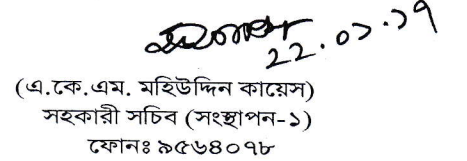 ২২.০১.১৭
(এ.কে.এম. মহিউদ্দিন কায়েস)
সহকারী সচিব (সংস্থাপন-১)
ফোনঃ ৯৫৬৪০৭৮